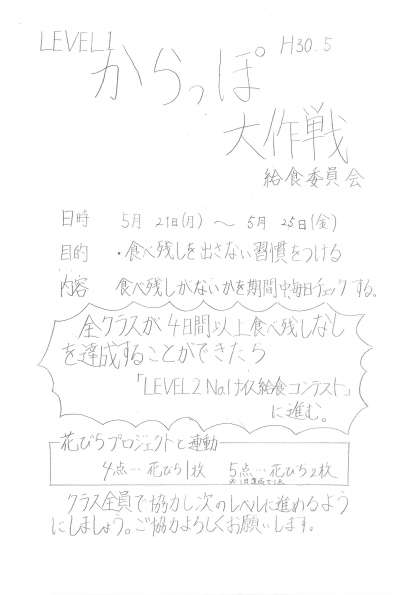 LEVEL1
H30.5
からっぽ
大作戦
給食委員会
日時 5月21日(月)～5月25日(金)
目的 ・食べ残しを出さない習慣をつける
内容 食べ残しがないかを期間中、毎日チェックする。
全クラスが4日間以上食べ残しなし
を達成することができたら
「LEVEL2 No.1ナイス給食コンテスト」
に進む。
花びらプロジェクトと連動
4点…花びら1枚 5点…花びら2枚
※1日達成で1点
クラス全員で協力し次のレベルに進めるよう
にしましょう。ご協力よろしくお願いします。